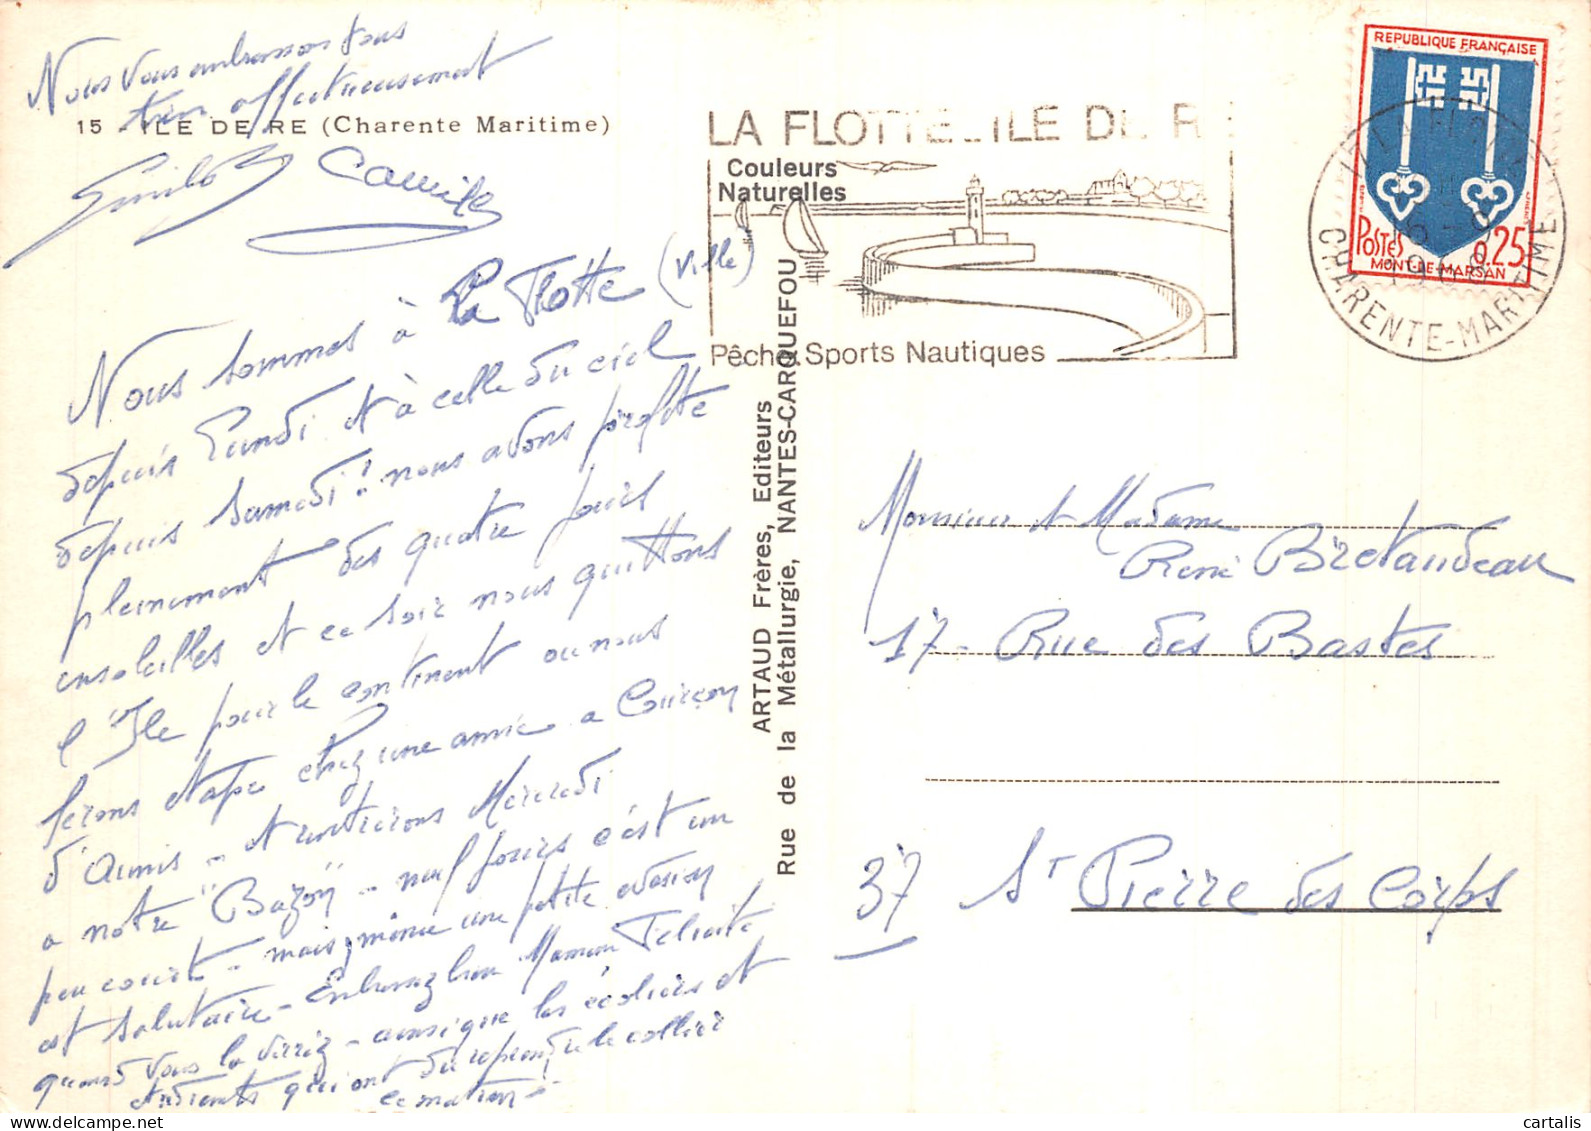 Nous vous embrassons tous
bien affectueusement
15 ILE DE RE (Charente Maritime)
Camille
Nous sommes à La Flotte (ville)
depuis Lundi et à celle du ciel
depuis Samedi! nous avons profité
pleinement des quatre jours
ensoleillés et ce soir nous quittons
l'Ile pour le continent ou nous
ferons étape chez une amie a Courçon
d'Aunis - et rentrerons Mercredi
a notre "Bazou" - neuf jours c'est un
peu court - mais même une petite évasion
est salutaire - Embrassez bien Maman Felicité
quand vous la verrez - ainsi que les écoliers et
étudiants qui ont du reprendre le collier
ce matin!
LA FLOTTE ILE DE RE
Couleurs
Naturelles
Pêche Sports Nautiques
ARTAUD Frères, Editeurs
Rue de la Métallurgie, NANTES-CARQUEFOU
REPUBLIQUE FRANÇAISE
POSTES 0,25
MONT-DE-MARSAN
17 LA FLOTTE
CHARENTE-MARITIME
Monsieur et Madame
René Bretaudeau
17 - Rue des Bastes
37 St Pierre des Corps
cartalis